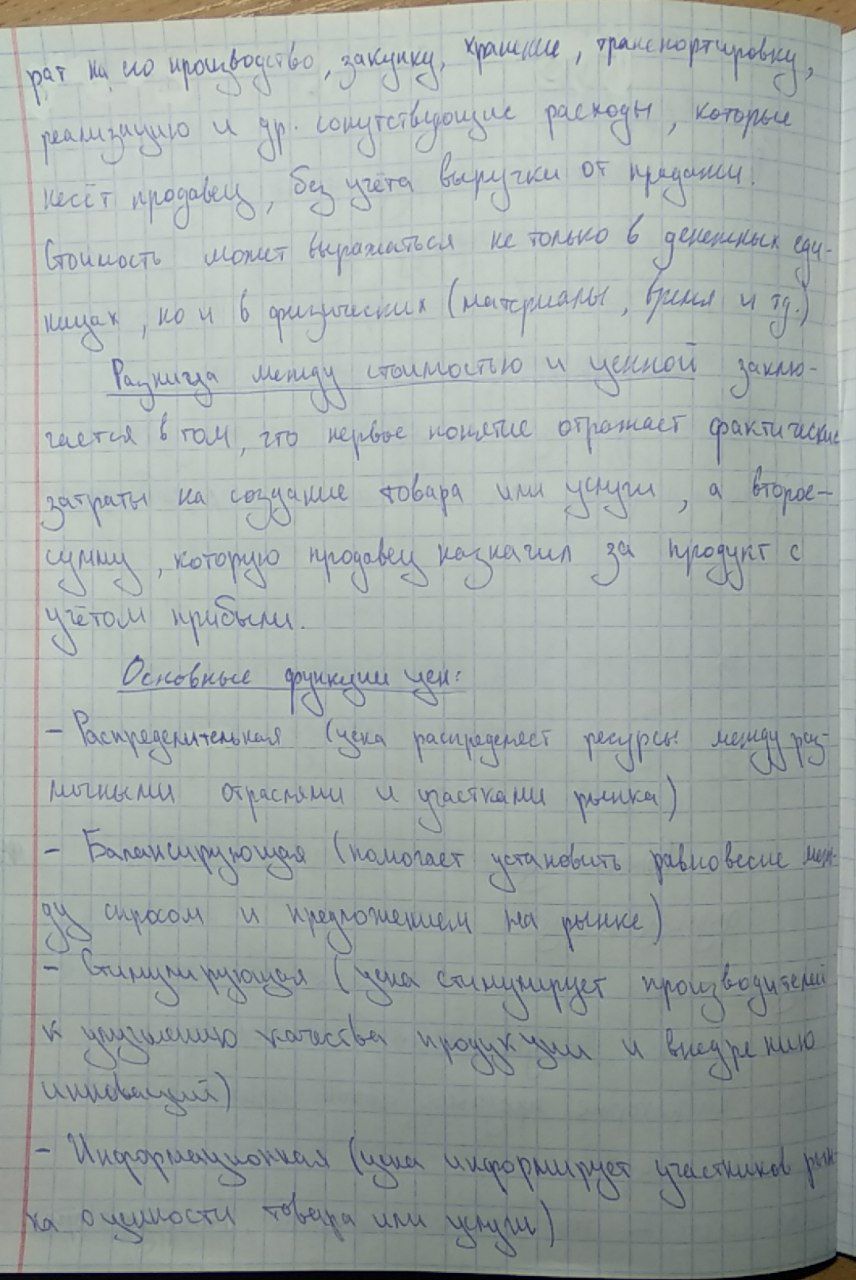 рат на его производство, закупку, хранение, транспортировку,
реализацию и др. сопутствующие расходы, которые
несёт продавец, без учёта выручки от продажи.
Стоимость может выражаться не только в денежных еди-
ницах, но и в физических (материалы, время и тд.)
Разница между стоимостью и ценной заклю-
чается в том, что первое понятие отражает фактические
затраты на создание товара или услуги, а второе-
сумму, которую продавец назначил за продукт с
учётом прибыли.
Основные функции цен:
- Распределительная (цена распределяет ресурсы между раз-
личными отраслями и участками рынка)
- Балансирующая (помогает установить равновесие меж-
ду спросом и предложением на рынке)
- Стимулирующая (цена стимулирует производителей
к улучшению качества продукции и внедрению
инноваций)
- Информационная (цена информирует участников рын-
ка о ценности товара или услуги)